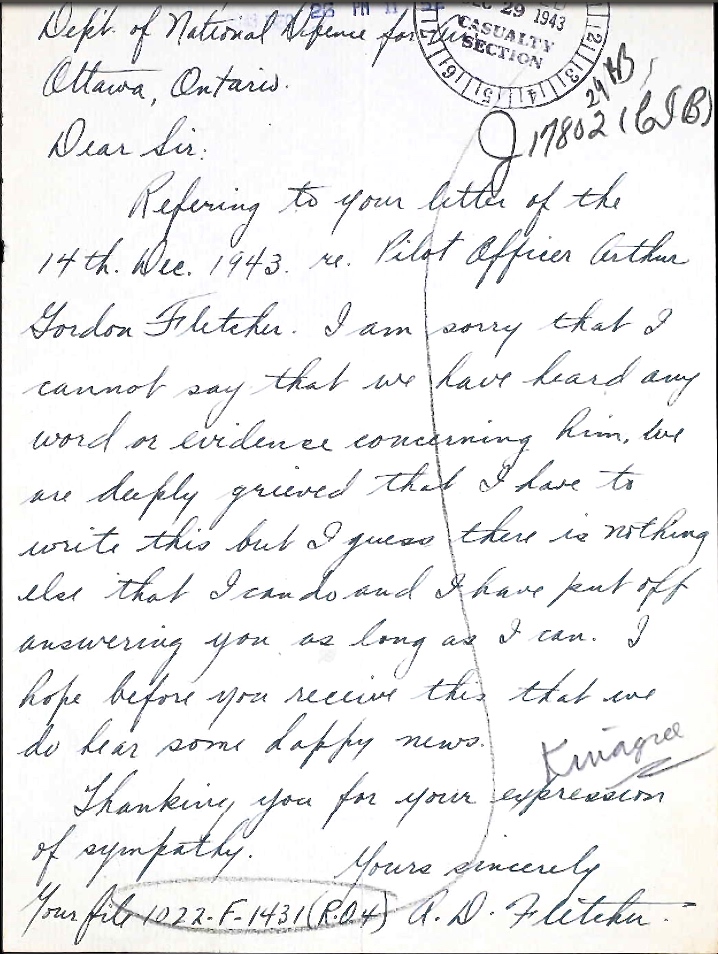 26 PM
29 1943
CASUALTY
SECTION
Dept. of National Defence for
Ottawa, Ontario.
J17802 (CIB)
Dear Sir:
Refering to your letter of the
14th. Dec. 1943. re. Pilot Officer Arthur
Gordon Fletcher. I am sorry that I
cannot say that we have heard any
word or evidence concerning him. We
are deeply grieved that I have to
write this but I guess there is nothing
else that I can do and I have put off
answering you as long as I can. I
hope before you receive this that we
do hear some happy news.
Thanking you for your expression
of sympathy.
Yours sincerely
Your file 1022-F-1431 (R.O.4) A. D. Fletcher.